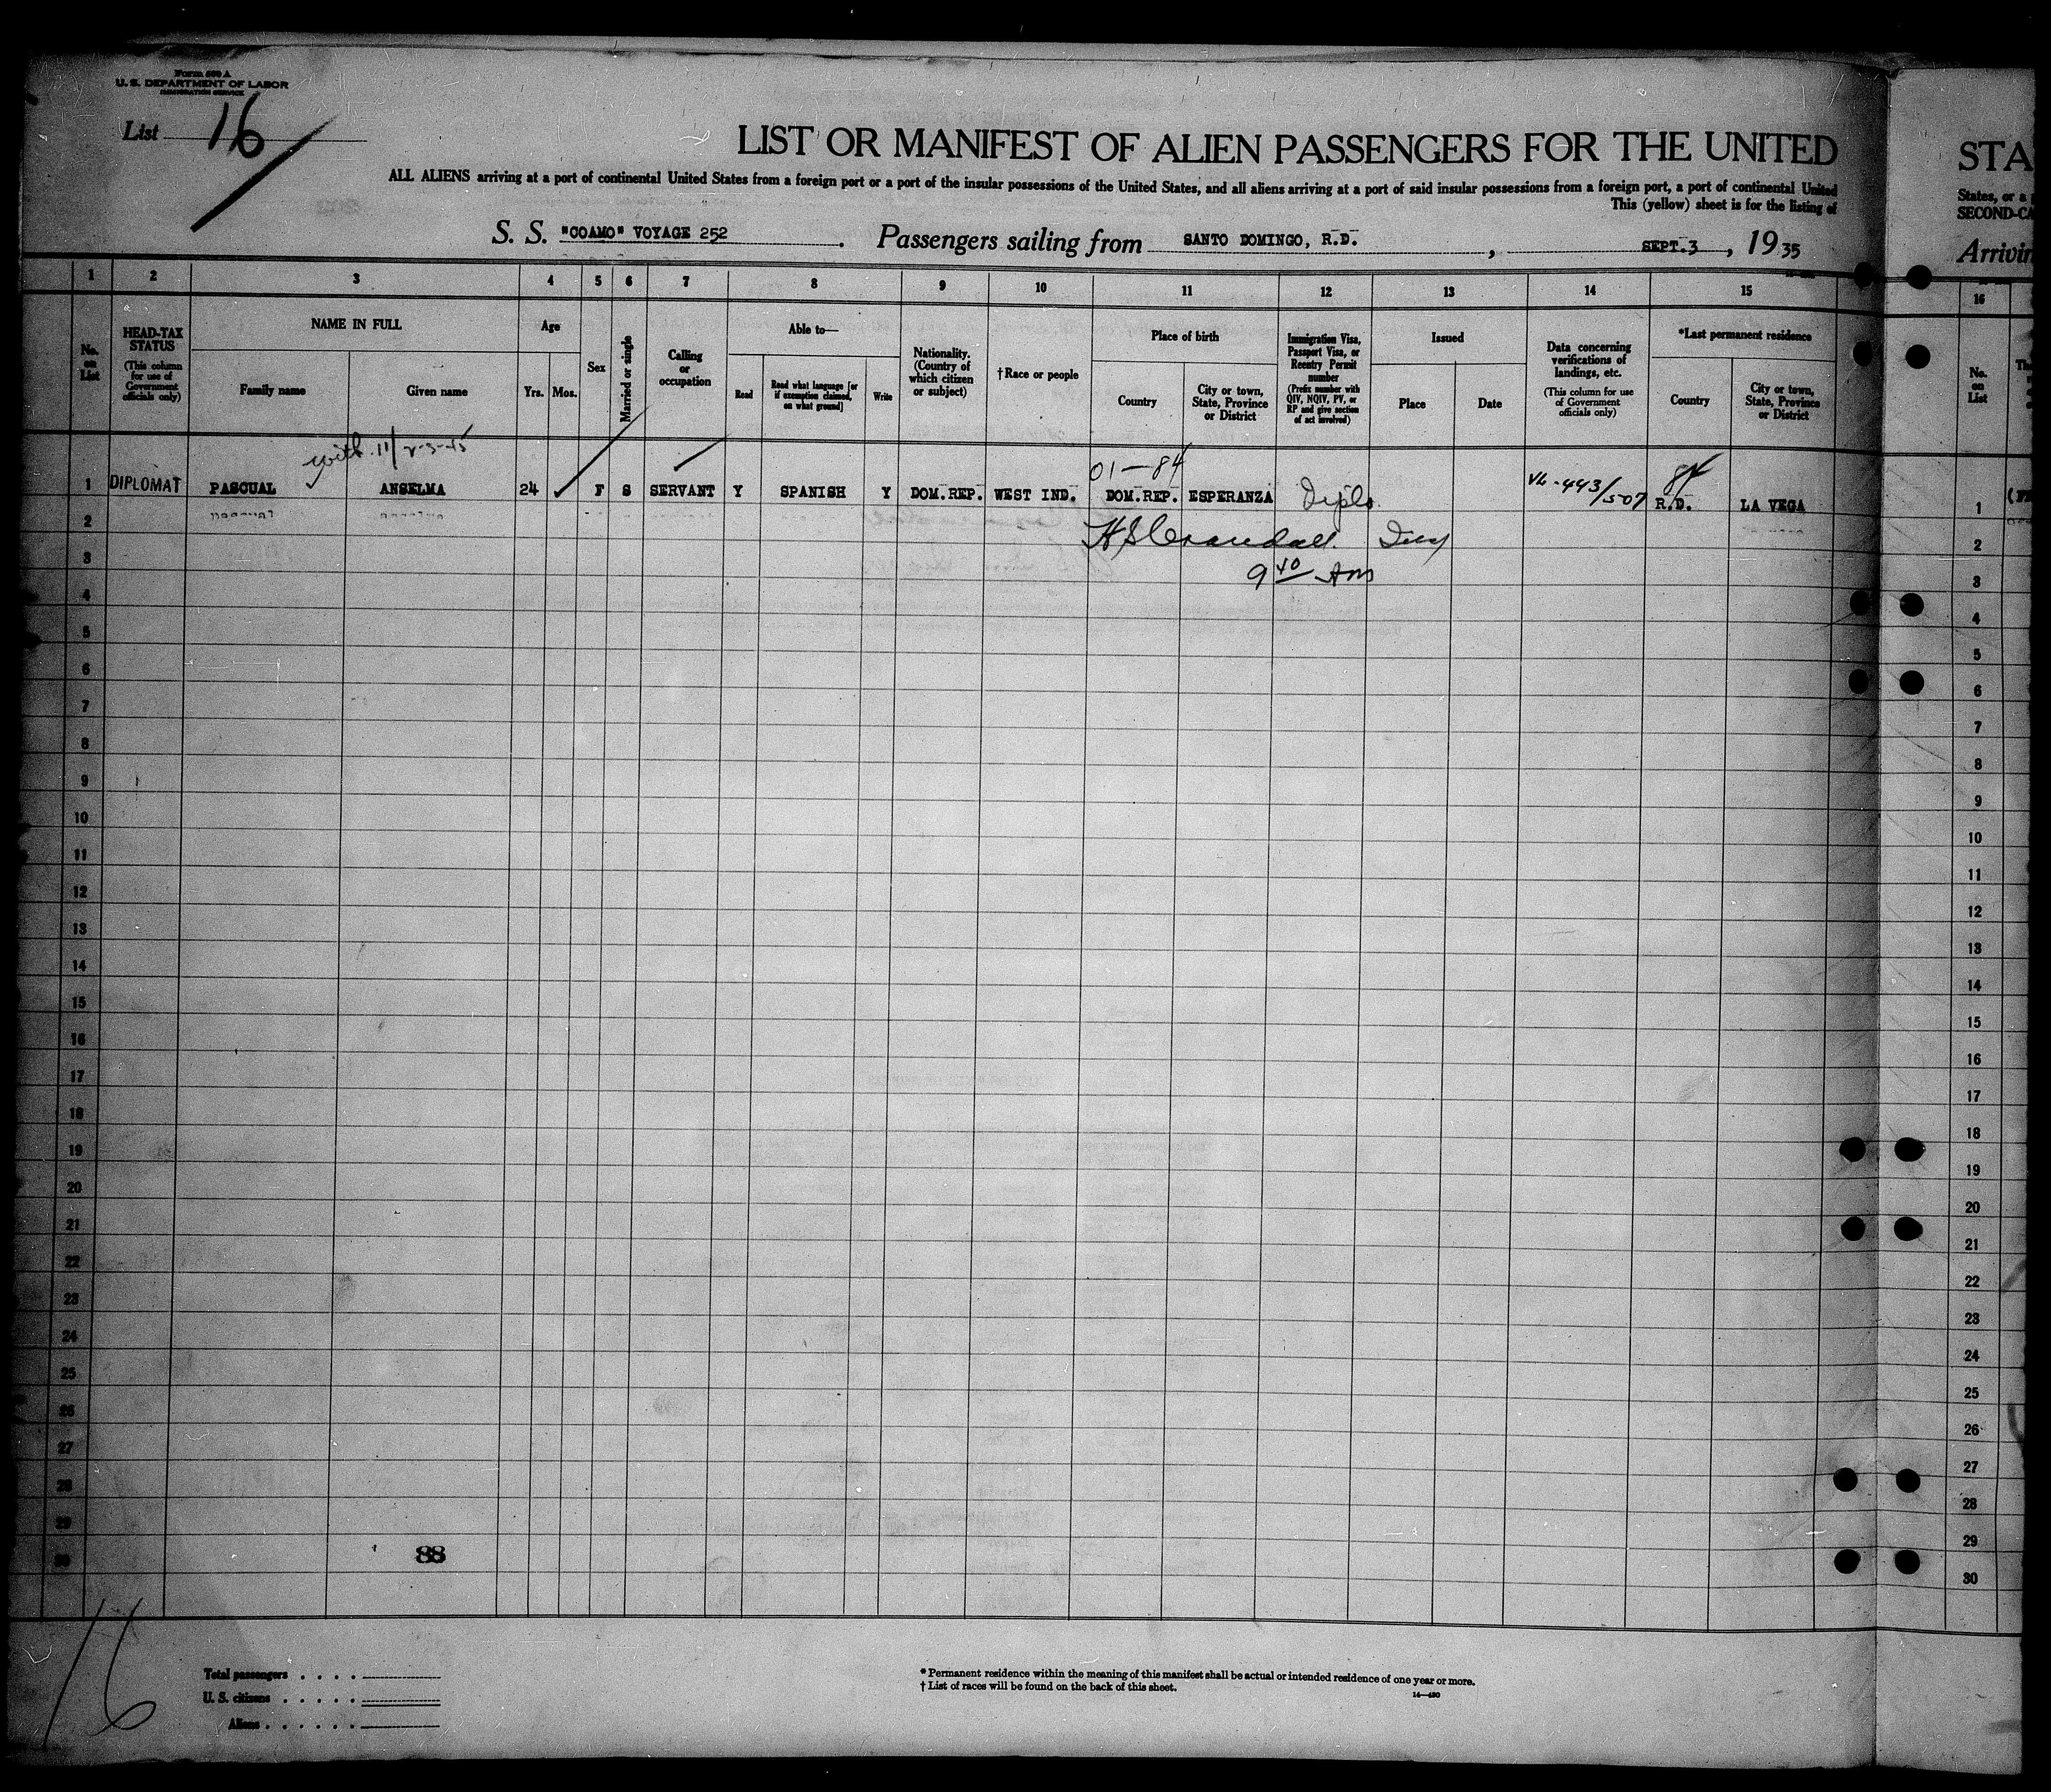 Form 500 A
U. S. DEPARTMENT OF LABOR
IMMIGRATION SERVICE
List 16
LIST OR MANIFEST OF ALIEN PASSENGERS FOR THE UNITED
STA
ALL ALIENS arriving at a port of continental United States from a foreign port or a port of the insular possessions of the United States, and all aliens arriving at a port of said insular possessions from a foreign port, a port of continental United
States, or a
This (yellow) sheet is for the listing of
SECOND-CA
S. S. "COAMO" VOYAGE 252. Passengers sailing from SANTO DOMINGO, R.D., SEPT.3, 1935
Arrivin
1 2 3 4 5 6 7 8 9 10 11 12 13 14 15
16
No. on List
HEAD-TAX STATUS
(This column for use of Government officials only)
NAME IN FULL
Family name
Given name
Age
Yrs. Mos.
Sex
Married or single
Calling or occupation
Able to—
Read
Read what language [or if exemption claimed, on what ground]
Write
Nationality. (Country of which citizen or subject)
†Race or people
Place of birth
Country
City or town, State, Province or District
Immigration Visa, Passport Visa, or Reentry Permit number
(Prefix number with QIV, NQIV, PV, or RP and give section of act involved)
Issued
Place
Date
Data concerning verifications of landings, etc.
(This column for use of Government officials only)
*Last permanent residence
Country
City or town, State, Province or District
No. on List
with 11/
01-84
84
1 DIPLOMAT PASCUAL ANSELMA 24 F S SERVANT Y SPANISH Y DOM.REP. WEST IND. DOM.REP. ESPERANZA Diplo. VL-443/507 R.D. LA VEGA
1
2
2
H S Crandall. Insp
3
9 40 AM
3
4
4
5
5
6
6
7
7
8
8
9
9
10
10
11
11
12
12
13
13
14
14
15
15
16
16
17
17
18
18
19
19
20
20
21
21
22
22
23
23
24
24
25
25
26
26
27
27
28
28
29
29
30
88
30
16
Total passengers . . . .
U. S. citizens . . . . .
Aliens . . . . . .
* Permanent residence within the meaning of this manifest shall be actual or intended residence of one year or more.
† List of races will be found on the back of this sheet.
14—480